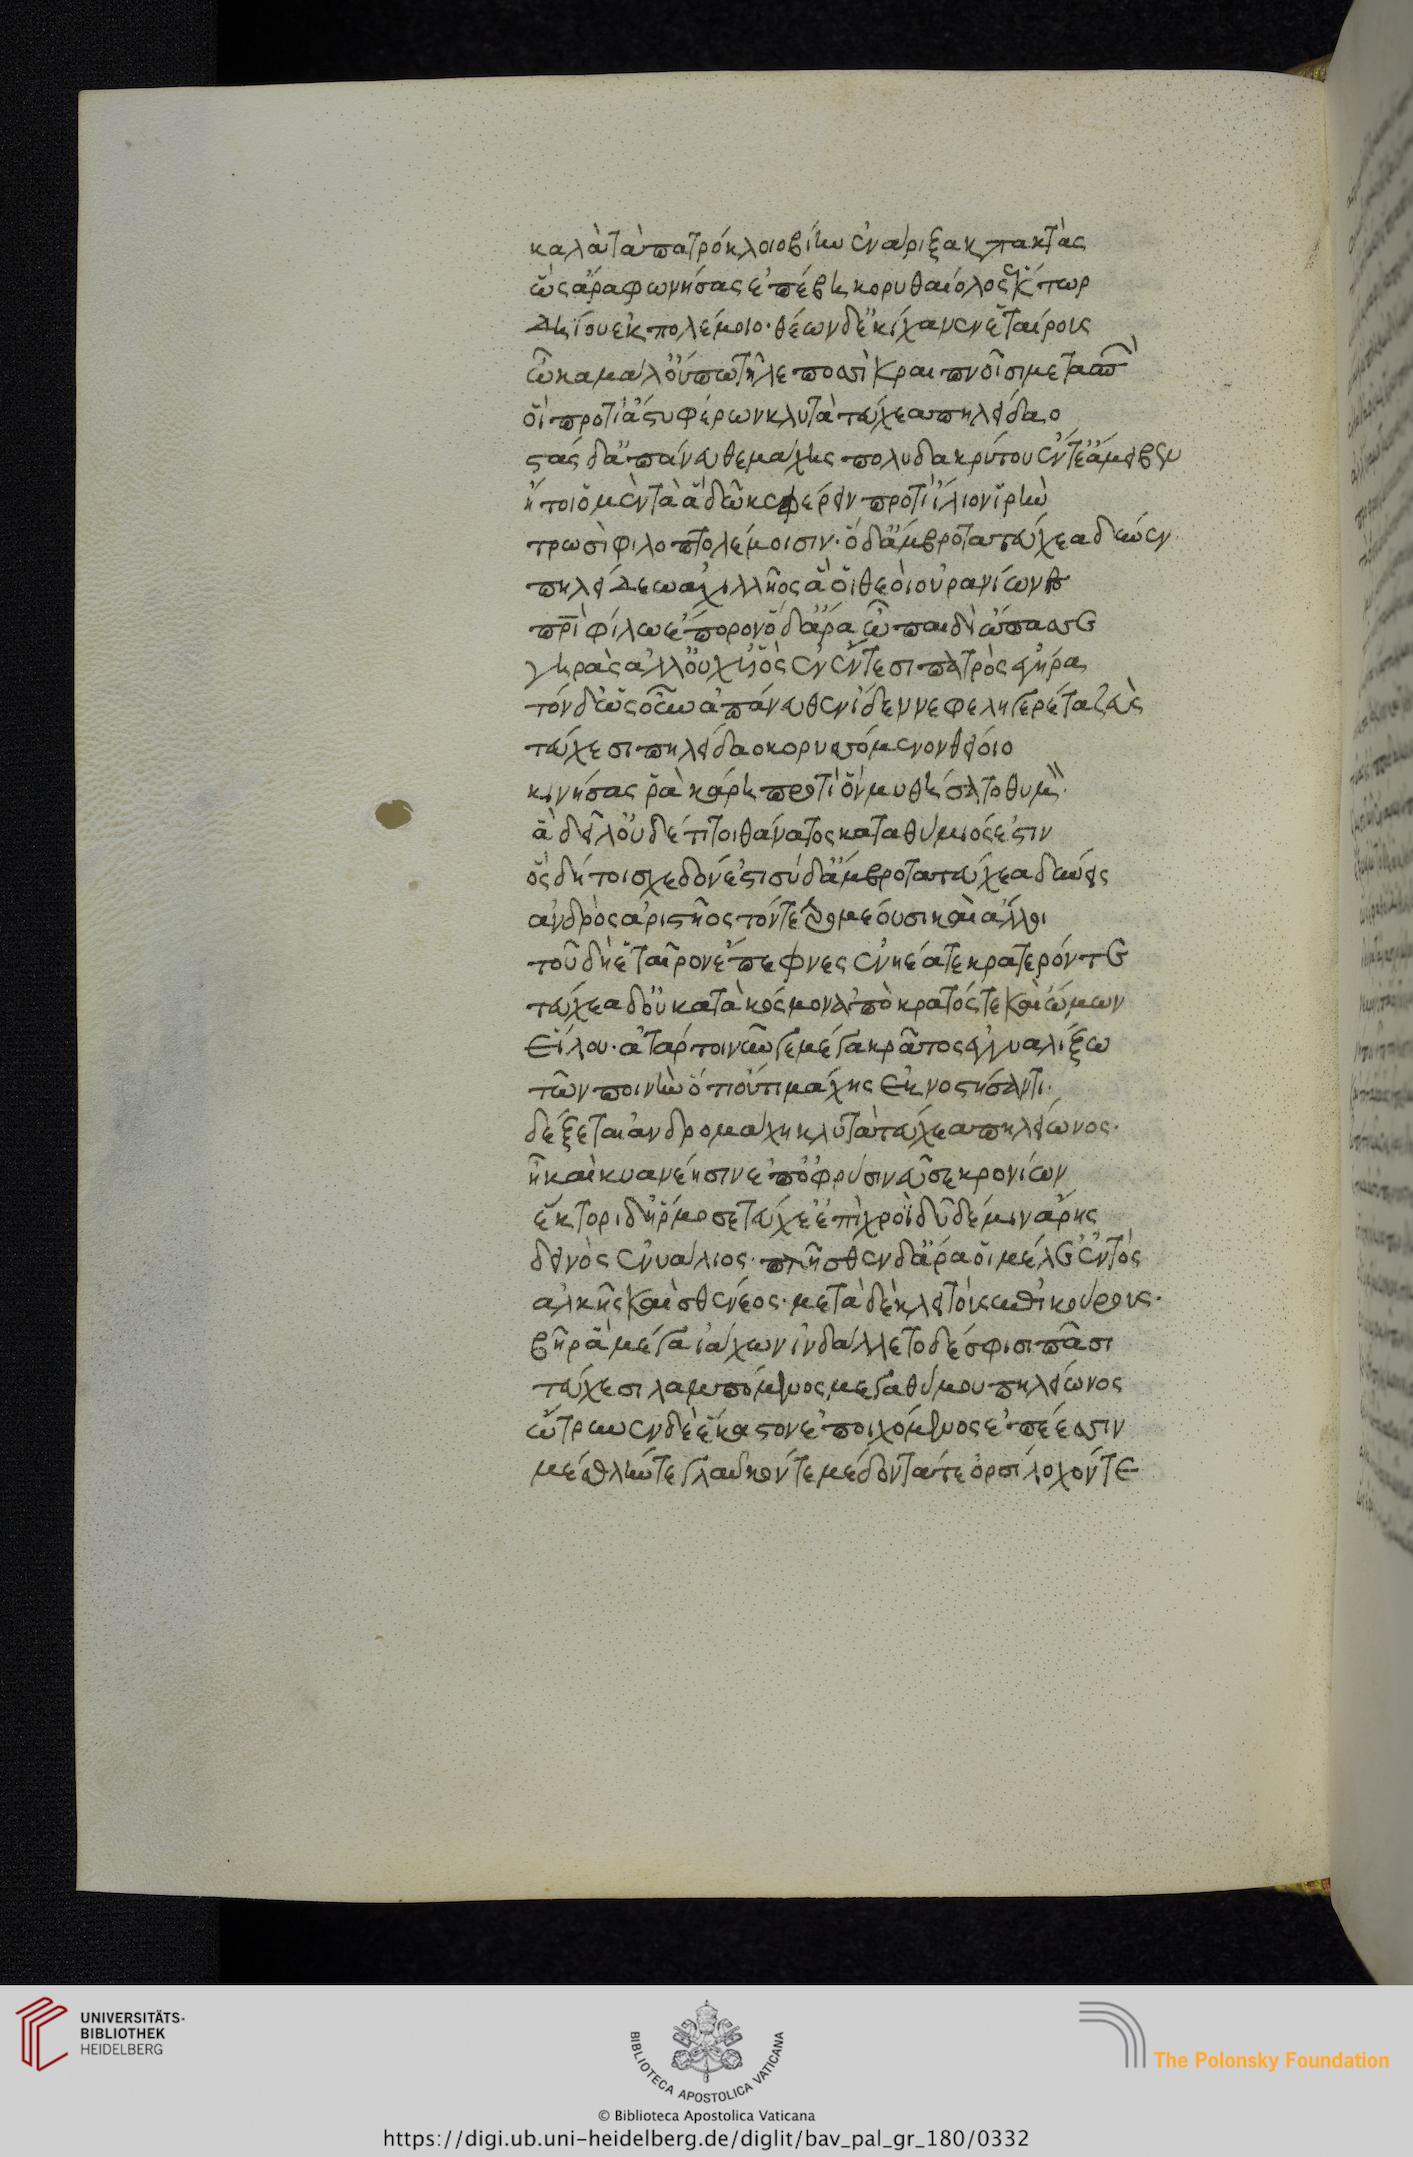 καλὰ τὰ πατρόκλοιο βίην ἐνάριξα κατακτὰς
ὣς ἄρα φωνήσας ἐπέβη κορυθαίολος ἕκτωρ
δηίου ἐκ πολέμοιο· θέων δ' ἐκίχανεν ἑταίρους
ὦκα μάλ' οὔπω τῆλε ποσὶ κραιπνοῖσι μετασπὼν
οἳ προτὶ ἄστυ φέρων κλυτὰ τεύχεα πηλείδαο
στάς δ' ἀπάνευθε μάχης πολυδακρύτου ἔντε' ἄμειβεν
ἤτοι ὃ μὲν τὰ ἃ δῶκε φέρειν προτὶ ἴλιον ἱρὴν
τρωσὶ φιλοπτολέμοισιν· ὁ δ' ἄμβροτα τεύχεα δῦνεν
πηλείδεω ἀχιλλῆος ἅ οἱ θεοὶ οὐρανίωνες
πατρὶ φίλω ἔπορον ὃ δ' ἄρα ᾧ παιδὶ ὤπασσε
γηρὰς ἀλλ' οὐχ υἱὸς ἐν ἔντεσι πατρὸς ἐγήρα
τὸν δ' ὡς οὖν ἀπάνευθεν ἴδεν νεφεληγερέτα ζεὺς
τεύχεσι πηλείδαο κορυσσόμενον θείοιο
κινήσας ῥα κάρη προτὶ ὃν μυθήσατο θυμόν·
ἆ δείλ' οὐδέ τί τοι θάνατος καταθύμιός ἐστιν
ὃς δή τοι σχεδόν ἐστι σὺ δ' ἄμβροτα τεύχεα δύνεις
ἀνδρὸς ἀριστῆος τόν τε τρομέουσι καὶ ἄλλοι
τοῦ δὴ ἑταῖρον ἔπεφνες ἐνηέα τε κρατερόν τε
τεύχεα δ' οὐ κατὰ κόσμον ἀπὸ κρατός τε καὶ ὤμων
εἵλου· ἀτάρ τοι νῦν γε μέγα κράτος ἐγγυαλίξω
τῶν ποινὴν ὅ τι οὔτι μάχης ἐκνοστήσαντι·
δέξεται ἀνδρομάχη κλυτὰ τεύχεα πηλείωνος·
ἦ καὶ κυανέησιν ἐπ' ὀφρύσι νεῦσε κρονίων
ἕκτορι δ' ἥρμοσε τεύχε' ἐπὶ χροῒ δῦ δέ μιν ἄρης
δεινὸς ἐνυάλιος· πλῆσθεν δ' ἄρα οἱ μέλε' ἐντὸς
ἀλκῆς καὶ σθένεος· μετὰ δὲ κλειτοὺς ἐπικούρους·
βῆ ῥα μέγα ἰάχων ἰνδάλλετο δέ σφισι πᾶσι
τεύχεσι λαμπόμενος μεγαθύμου πηλείωνος
ὤτρυνεν δὲ ἕκαστον ἐποιχόμενος ἐπέεσσιν
μέσθλην τε γλαῦκόν τε μέδοντά τε ὀρσίλοχόν τε
UNIVERSITÄTS-
BIBLIOTHEK
HEIDELBERG
BIBLIOTECA APOSTOLICA VATICANA
The Polonsky Foundation
© Biblioteca Apostolica Vaticana
https://digi.ub.uni-heidelberg.de/diglit/bav_pal_gr_180/0332